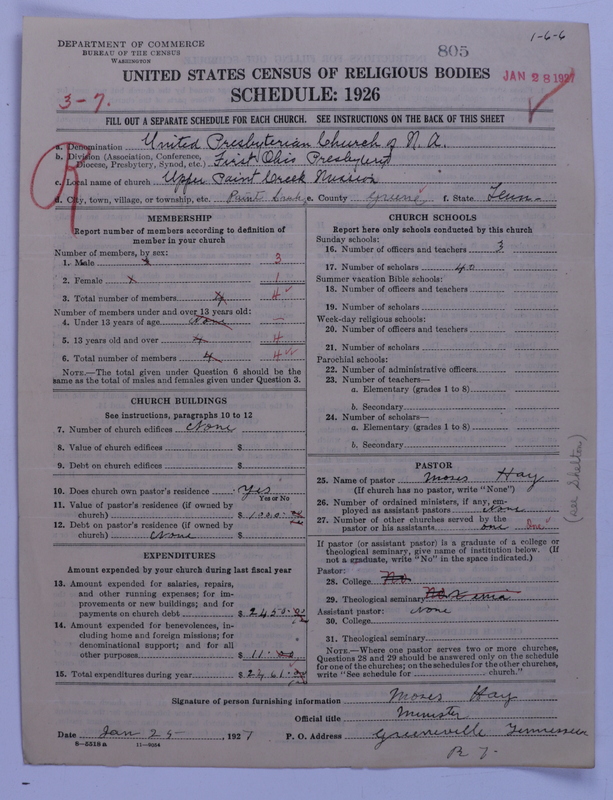 DEPARTMENT OF COMMERCE
BUREAU OF THE CENSUS
WASHINGTON
805
1-6-6
UNITED STATES CENSUS OF RELIGIOUS BODIES
JAN 28 1927
3-7.
SCHEDULE: 1926
FILL OUT A SEPARATE SCHEDULE FOR EACH CHURCH. SEE INSTRUCTIONS ON THE BACK OF THIS SHEET
R
a. Denomination United Presbyterian Church of N. A.
b. Division (Association, Conference, Diocese, Presbytery, Synod, etc.) First Ohio Presbytery
c. Local name of church Upper Paint Creek Mission
d. City, town, village, or township, etc. Paint e. County Greene f. State Tenn-
MEMBERSHIP
Report number of members according to definition of
member in your church
Number of members, by sex:
1. Male 3
2. Female 1
3. Total number of members 4 4
Number of members under and over 13 years old:
4. Under 13 years of age None —
5. 13 years old and over 4 4
6. Total number of members 4 4
NOTE.—The total given under Question 6 should be
same as the total of males and females given under Question 3.
CHURCH BUILDINGS
See instructions, paragraphs 10 to 12
7. Number of church edifices None
8. Value of church edifices $
9. Debt on church edifices $
10. Does church own pastor's residence Yes
Yes or No
11. Value of pastor's residence (if owned by
church) $ 1000.00
12. Debt on pastor's residence (if owned by
church) None $
EXPENDITURES
Amount expended by your church during last fiscal year
13. Amount expended for salaries, repairs,
and other running expenses; for im-
provements or new buildings; and for
payments on church debt $ 2450.00
14. Amount expended for benevolences, in-
cluding home and foreign missions; for
denominational support; and for all
other purposes $ 11.00
15. Total expenditures during year $ 2461.00
CHURCH SCHOOLS
Report here only schools conducted by this church
Sunday schools:
16. Number of officers and teachers 3
17. Number of scholars 40
Summer vacation Bible schools:
18. Number of officers and teachers
19. Number of scholars
Week-day religious schools:
20. Number of officers and teachers
21. Number of scholars
Parochial schools:
22. Number of administrative officers
23. Number of teachers—
a. Elementary (grades 1 to 8)
b. Secondary
24. Number of scholars—
a. Elementary (grades 1 to 8)
b. Secondary
PASTOR
25. Name of pastor Moses Hay
(If church has no pastor, write "None")
26. Number of ordained ministers, if any, em-
ployed as assistant pastors None
27. Number of other churches served by the
pastor or his assistants one One
(see Shelton)
If pastor (or assistant pastor) is a graduate of a college or
theological seminary, give name of institution below. (If
not a graduate, write "No" in the space indicated.)
Pastor:
28. College No
29. Theological seminary No Xenia
Assistant pastor: None
30. College
31. Theological seminary
NOTE.—Where one pastor serves two or more churches,
Questions 28 and 29 should be answered only on the schedule
for one of the churches; on the schedules for the other churches,
write "See schedule for church."
Signature of person furnishing information Moses Hay
Official title Minister
Date Jan 25 1927 P. O. Address Greeneville Tennessee
8—5518 a 11—9064
R 7.